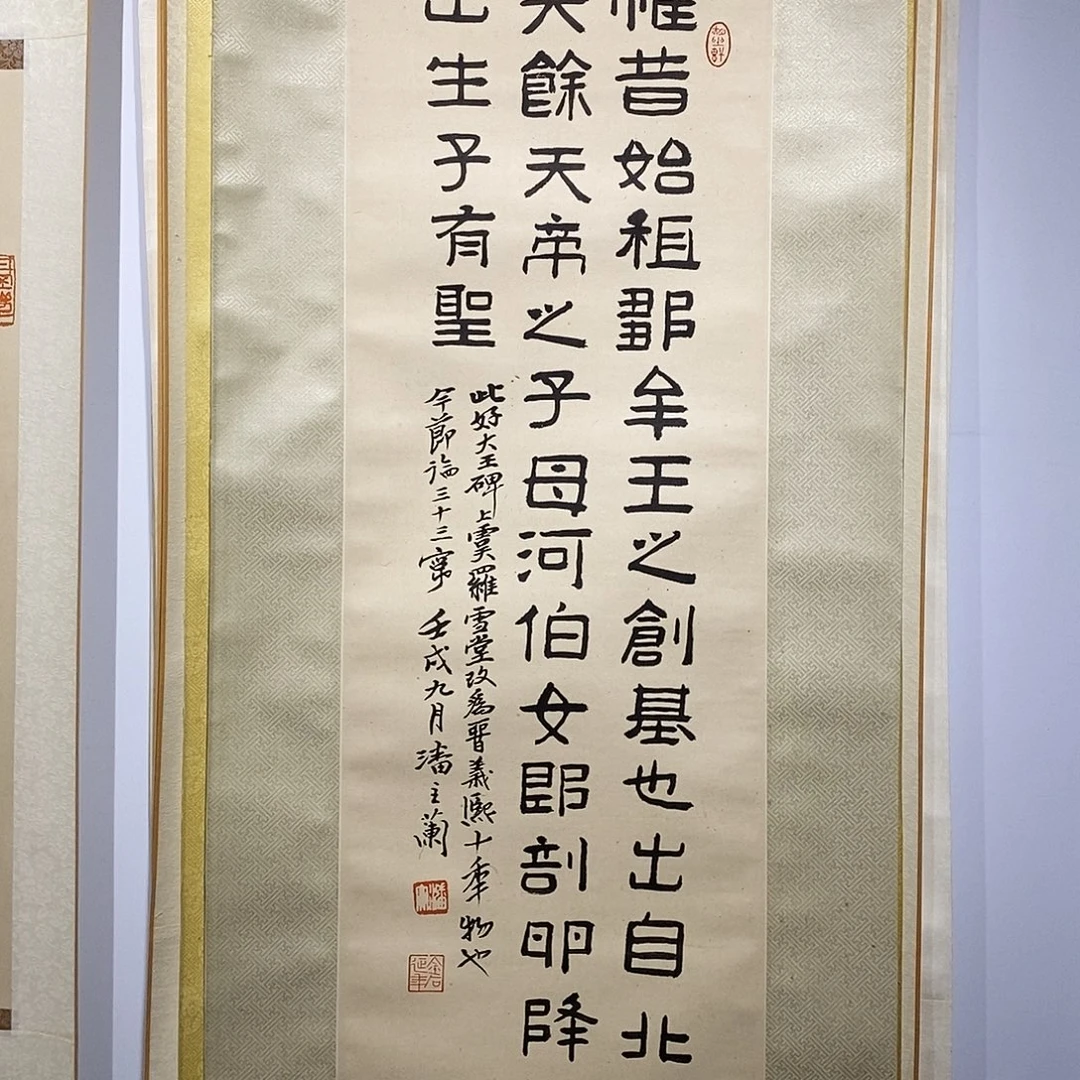 惟昔始祖鄒牟王之創基也出自北
夫餘天帝之子母河伯女郎剖卵降
出生子有聖
此好大王碑上虞羅雪堂攷爲晉義熙十年物也
今節臨三十三字 壬戌九月潘主蘭
金石延年